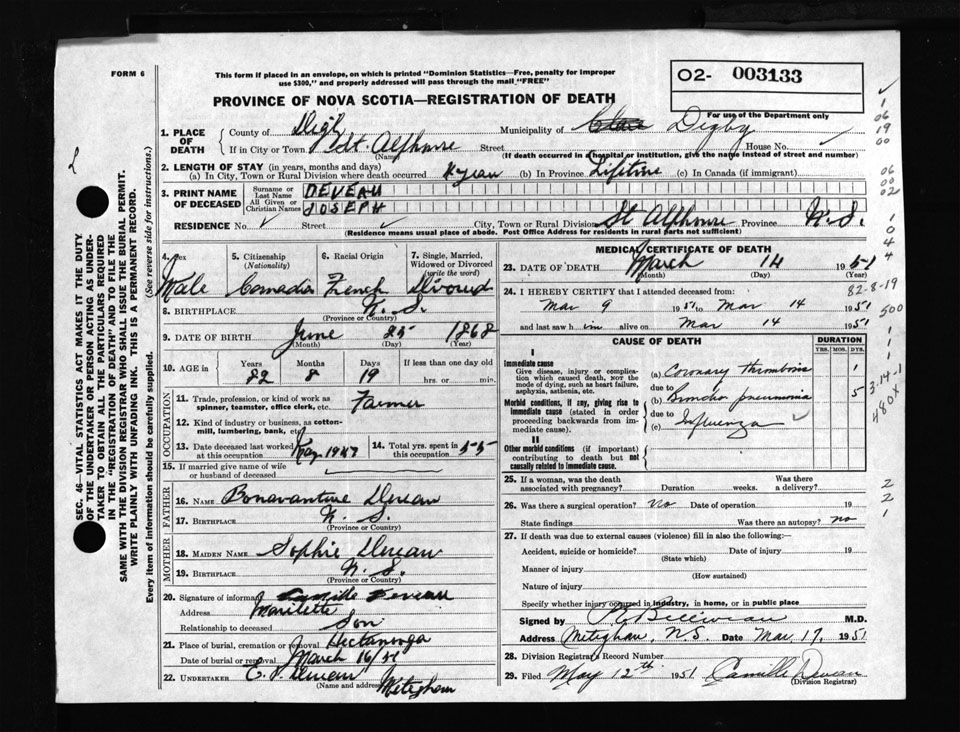 FORM 6
This form if placed in an envelope, on which is printed "Dominion Statistics—Free, penalty for improper
use $300," and properly addressed will pass through the mail "FREE"
O2- 003133
For use of the Department only
PROVINCE OF NOVA SCOTIA—REGISTRATION OF DEATH
1. PLACE OF DEATH
County of Digby Municipality of Clare Digby
If in City or Town St. Alphonse Street House No.
(Name) (If death occurred in a hospital or institution, give the name instead of street and number)
2. LENGTH OF STAY (in years, months and days)
(a) In City, Town or Rural Division where death occurred 4 years (b) In Province Lifetime (c) In Canada (if immigrant)
3. PRINT NAME OF DECEASED
Surname or Last Name DEVEAU
All Given or Christian Names JOSEPH
RESIDENCE No. Street City, Town or Rural Division St Alphonse Province N.S.
(Residence means usual place of abode. Post Office Address for residents in rural parts not sufficient)
4. Sex 5. Citizenship (Nationality) 6. Racial Origin 7. Single, Married, Widowed or Divorced (write the word)
Male Canada French
8. BIRTHPLACE N. S.
(Province or Country)
9. DATE OF BIRTH June 25 1868
(Month) (Day) (Year)
10. AGE in Years Months Days If less than one day old
82 8 19 hrs. or min.
OCCUPATION
11. Trade, profession, or kind of work as spinner, teamster, office clerk, etc. Farmer
12. Kind of industry or business, as cotton-mill, lumbering, bank, etc.
13. Date deceased last worked at this occupation May 1947 14. Total yrs. spent in this occupation 55
15. If married give name of wife or husband of deceased
FATHER
16. NAME Bonavanture Deveau
17. BIRTHPLACE N. S.
(Province or Country)
MOTHER
18. MAIDEN NAME Sophie Deveau
19. BIRTHPLACE N. S.
(Province or Country)
20. Signature of informant Camille Deveau
Address
Relationship to deceased Son
21. Place of burial, cremation or removal Hectanooga
Date of burial or removal March 16/51
22. UNDERTAKER Deveau Meteghan
(Name and address)
MEDICAL CERTIFICATE OF DEATH
23. DATE OF DEATH March 14 1951
(Month) (Day)
24. I HEREBY CERTIFY that I attended deceased from: 82-8-19
Mar 9 1951 to Mar 14 1951
and last saw him alive on Mar 14 1951
CAUSE OF DEATH DURATION
YRS. MOS. DYS.
I
Immediate cause
Give disease, injury or complication which caused death, NOT the mode of dying, such as heart failure, asphyxia, asthenia, etc.
(a) Coronary thrombosis 1
due to
Morbid conditions, if any, giving rise to immediate cause (stated in order proceeding backwards from immediate cause).
(b) Broncho pneumonia 5
due to
(c) Influenza
II
Other morbid conditions (if important) contributing to death but not causally related to immediate cause.
25. If a woman, was the death associated with pregnancy? Duration weeks. Was there a delivery?
26. Was there a surgical operation? No Date of operation 19
State findings Was there an autopsy? no
27. If death was due to external causes (violence) fill in also the following:
Accident, suicide or homicide? Date of injury 19
(State which)
Manner of injury
(How sustained)
Nature of injury
Specify whether injury occurred in industry, in home, or in public place
Signed by M.D.
Address Meteghan, N.S. Date Mar 17, 1951
28. Division Registrar's Record Number
29. Filed May 12th 1951 Camille Deveau
(Division Registrar)
SEC. 46—VITAL STATISTICS ACT MAKES IT THE DUTY
OF THE UNDERTAKER OR PERSON ACTING AS UNDER-
TAKER TO OBTAIN ALL THE PARTICULARS REQUIRED
IN THE "REGISTRATION OF DEATH" AND TO FILE THE
SAME WITH THE DIVISION REGISTRAR WHO SHALL ISSUE THE BURIAL PERMIT.
WRITE PLAINLY WITH UNFADING INK. THIS IS A PERMANENT RECORD.
Every item of information should be carefully supplied. (See reverse side for instructions.)